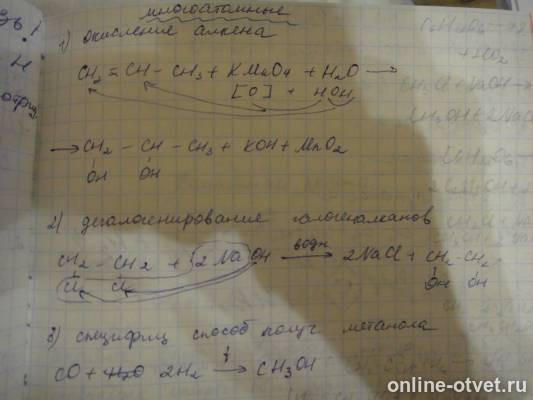 многоатомные
1) окисление алкена
CH2 = CH - CH3 + KMnO4 + H2O →
[O] + HOH
→ CH2 - CH - CH3 + KOH + MnO2
OH OH
2) дегалогенирование галогеналканов
CH2 - CH2 + 2NaOH водн → 2NaCl + CH2 - CH2
Cl Cl OH OH
3) специфич способ получ метанола
CO + 2H2 t → CH3OH
online-otvet.ru